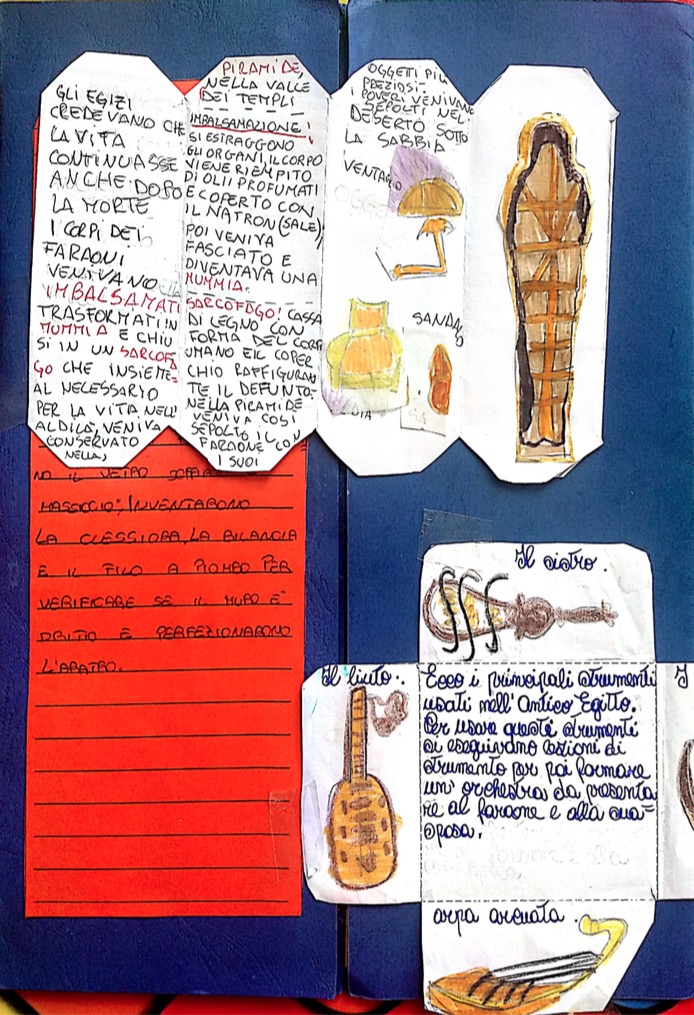 GLI EGIZI
CREDEVANO CHE
LA VITA
CONTINUASSE
ANCHE DOPO
LA MORTE
I CORPI DEI
FARAONI
VENIVANO
IMBALSAMATI
TRASFORMATI IN
MUMMIA E CHIU
SI IN UN SARCOFA
GO CHE INSIEME
AL NECESSARIO
PER LA VITA NELL'
ALDILÀ, VENIVA
CONSERVATO
NELLA,
PIRAMIDE,
NELLA VALLE
DEI TEMPLI
IMBALSAMAZIONE:
SI ESTRAGGONO
GLI ORGANI, IL CORPO
VIENE RIEMPITO
DI OLII PROFUMATI
E COPERTO CON
IL NATRON (SALE)
POI VENIVA
FASCIATO E
DIVENTAVA UNA
MUMMIA.
SARCOFAGO: CASSA
DI LEGNO CON
FORMA DEL CORPO
UMANO E IL COPER
CHIO RAFFIGURAN
TE IL DEFUNTO.
NELLA PIRAMIDE
VENIVA COSÌ
SEPOLTO IL
FARAONE CON
I SUOI
OGGETTI PIÙ
PREZIOSI.
I POVERI VENIVANO
SEPOLTI NEL
DESERTO SOTTO
LA SABBIA
VENTAGLIO
SANDALO
NO IL VETRO
MASSICCIO; INVENTARONO
LA CLESSIDRA, LA BILANCIA
E IL FILO A PIOMBO PER
VERIFICARE SE IL MURO È
DRITTO E PERFEZIONARONO
L'ARATRO.
Il sistro.
Il liuto.
Ecco i principali strumenti
usati nell'Antico Egitto.
Per usare questi strumenti
si eseguivano lezioni di
strumento per poi formare
un'orchestra da presenta
re al faraone e alla sua
sposa.
arpa arcuata.